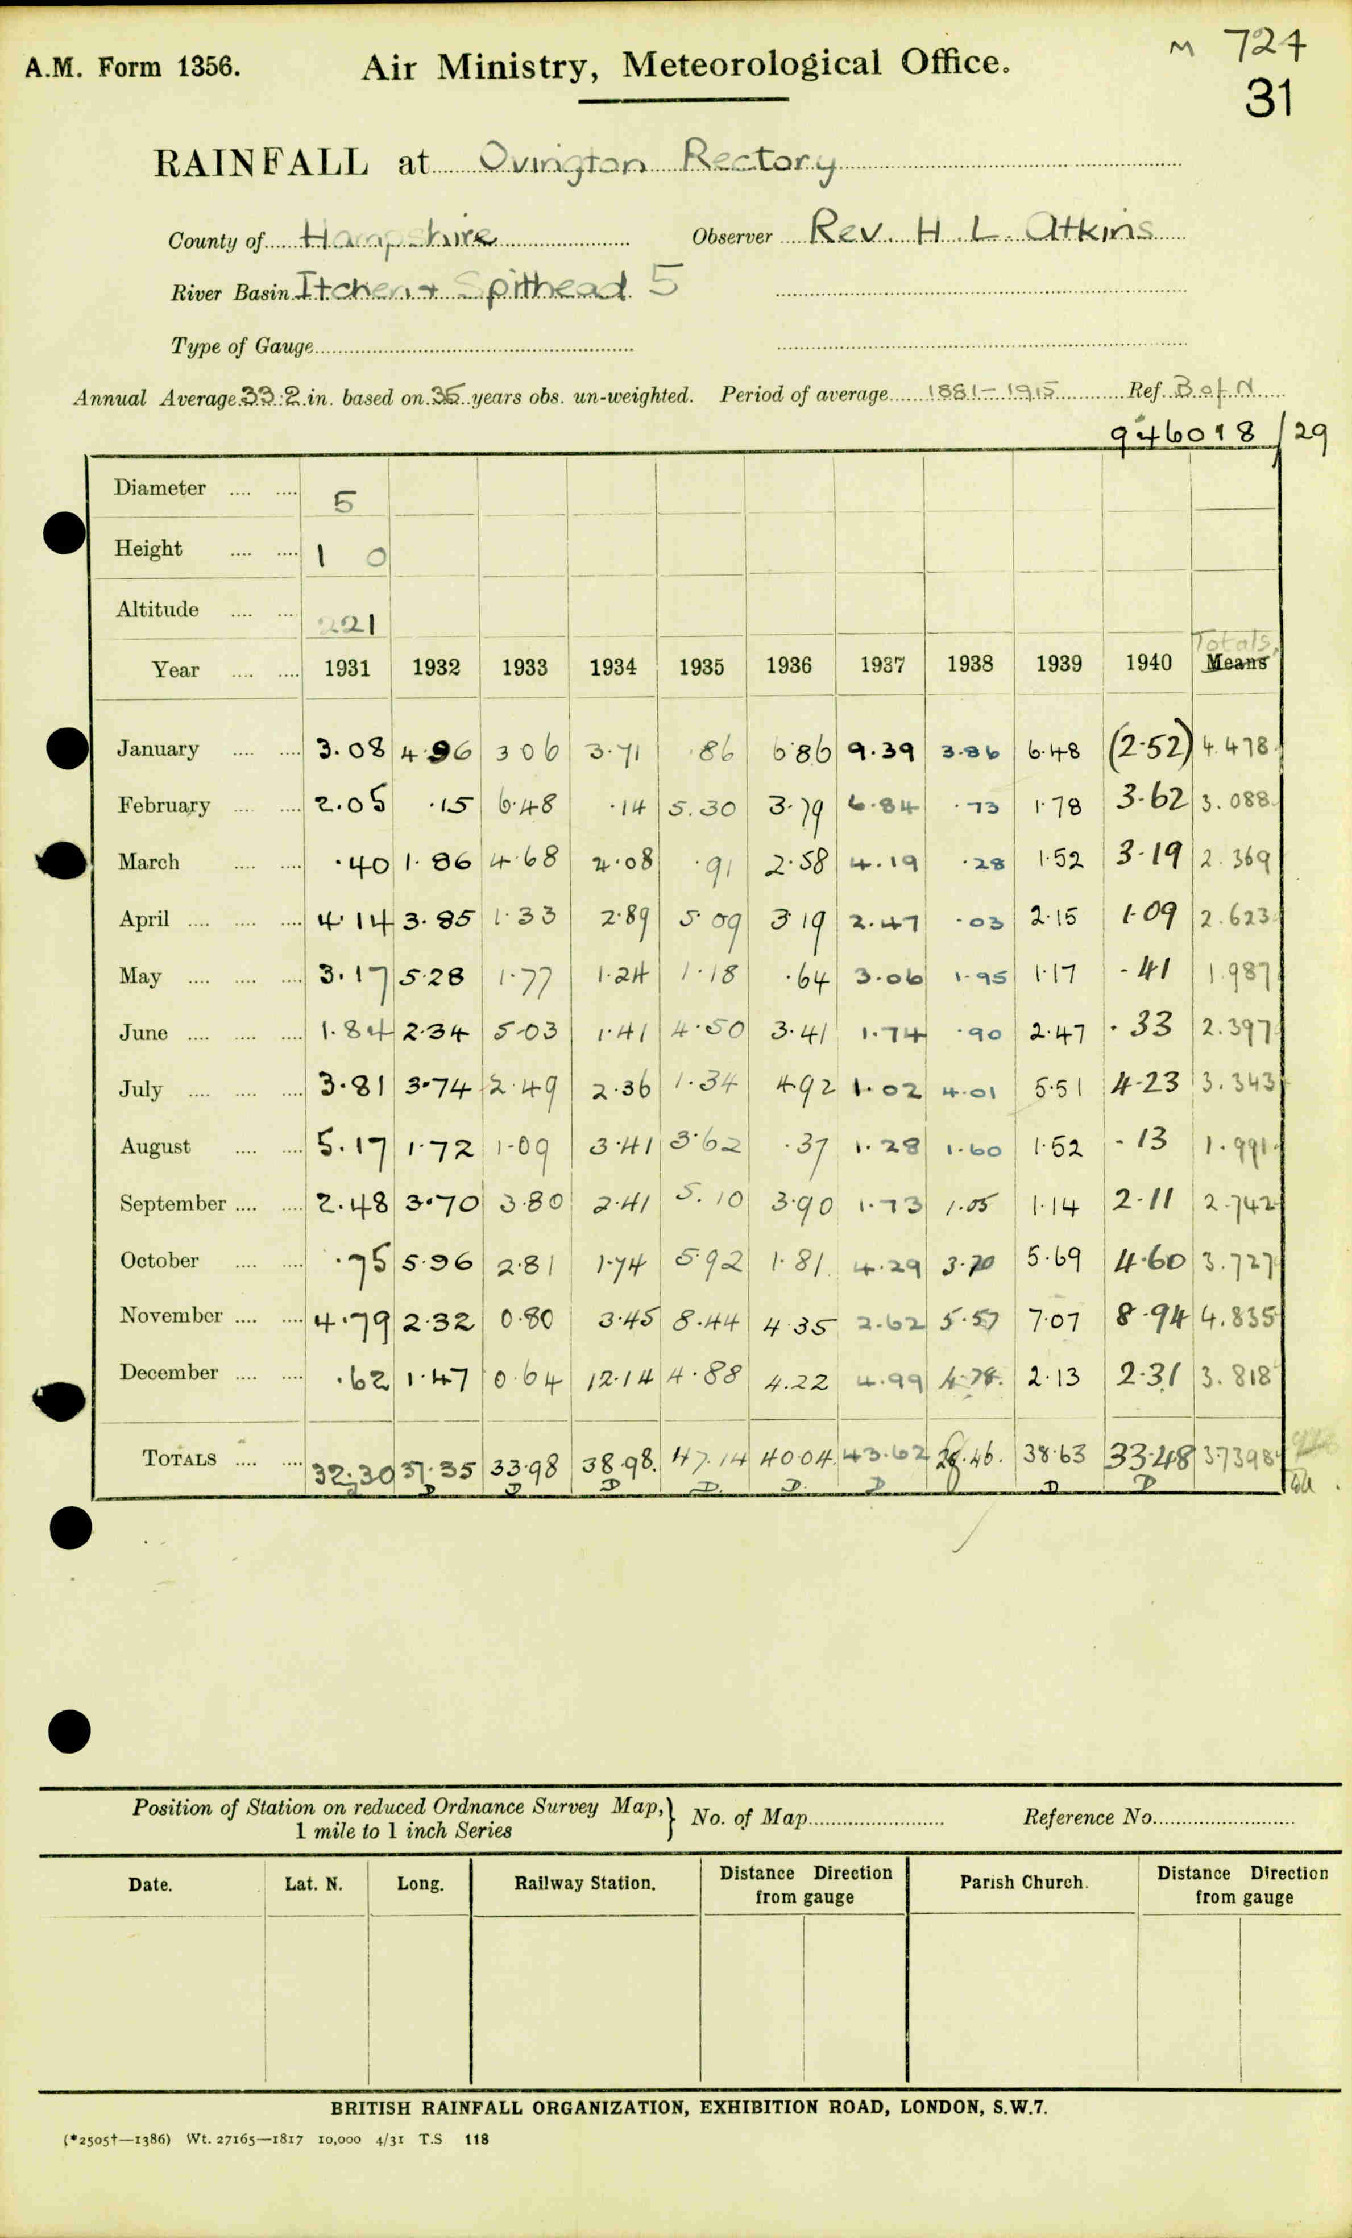 M 724
A.M. Form 1356. Air Ministry, Meteorological Office.
31
RAINFALL at Ovington Rectory
County of Hampshire Observer Rev. H. L. Atkins
River Basin Itchen + Spithead 5
Type of Gauge
Annual Average 33.2 in. based on 35 years obs. un-weighted. Period of average 1881-1915 Ref. B of N
946018/29
Diameter 5
Height 1 0
Altitude 221
Totals
Year 1931 1932 1933 1934 1935 1936 1937 1938 1939 1940 Means
January 3.08 4.96 3 06 3.71 .86 6.86 9.39 3.86 6.48 (2.52) 4.478
February 2.05 .15 6.48 .14 5.30 3.79 6.84 .73 1.78 3.62 3.088
March .40 1.86 4.68 4.08 .91 2.58 4.19 .28 1.52 3.19 2.369
April 4.14 3.85 1.33 2.89 5.09 3.19 2.47 .03 2.15 1.09 2.623
May 3.17 5.28 1.77 1.24 1.18 .64 3.06 1.95 1.17 .41 1.987
June 1.84 2.34 5.03 1.41 4.50 3.41 1.74 .90 2.47 .33 2.397
July 3.81 3.74 2.49 2.36 1.34 4.92 1.02 4.01 5.51 4.23 3.343
August 5.17 1.72 1.09 3.41 3.62 .37 1.28 1.60 1.52 .13 1.991
September 2.48 3.70 3.80 2.41 5.10 3.90 1.73 1.05 1.14 2.11 2.742
October .75 5.96 2.81 1.74 5.92 1.81 4.29 3.70 5.69 4.60 3.727
November 4.79 2.32 0.80 3.45 8.44 4.35 2.62 5.57 7.07 8.94 4.835
December .62 1.47 0.64 12.14 4.88 4.22 4.99 4.78 2.13 2.31 3.818
TOTALS 32.30 37.35 33.98 38.98. 47.14 40.04 43.62 28.46. 38.63 33.48 37398
D D D D D D D D
Position of Station on reduced Ordnance Survey Map, 1 mile to 1 inch Series } No. of Map Reference No.
Date. Lat. N. Long. Railway Station. Distance Direction from gauge Parish Church. Distance Direction from gauge
BRITISH RAINFALL ORGANIZATION, EXHIBITION ROAD, LONDON, S.W.7.
(*2505†—1386) Wt. 27165—1817 10,000 4/31 T.S 118